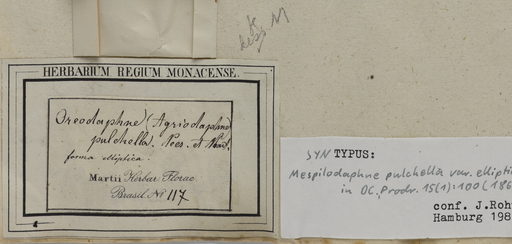 HERBARIUM REGIUM MONACENSE.
Oreodaphne (Agriodaphne
pulchella. Nees. et Mart.
forma elliptica.
Martii Herbar. Florae
Brasil. No 117
SYN TYPUS:
Mespilodaphne pulchella var. ellipti
in DC. Prodr. 15(1):100 (186
conf. J.Roh
Hamburg 198